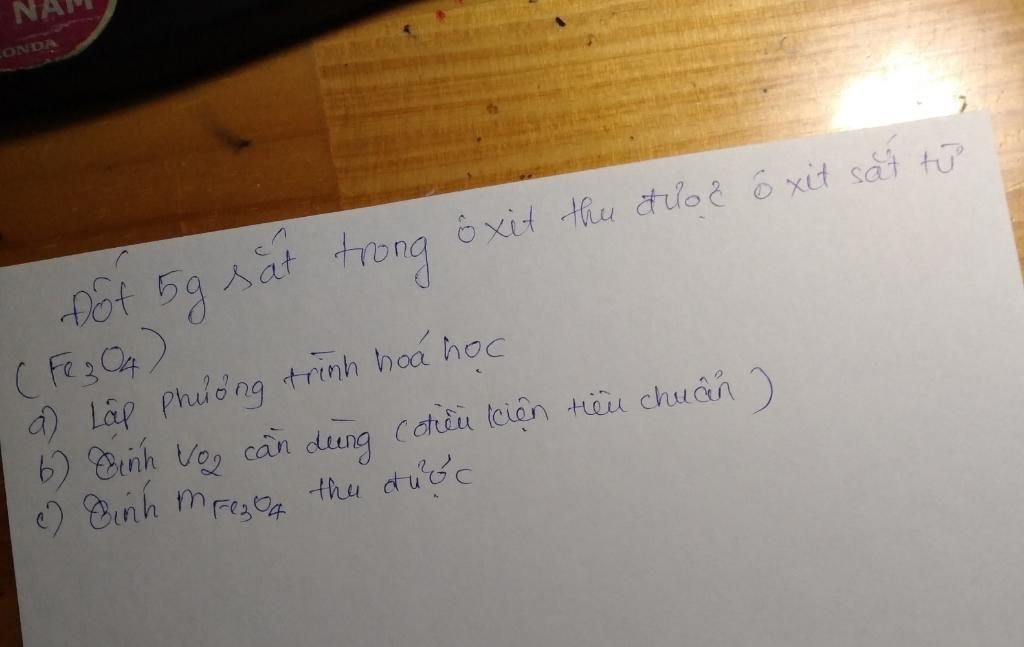 NAM
ONDA
Đốt 5g sắt trong ôxit thu được ôxit sắt từ
(Fe3O4)
a) Lập phương trình hoá học
b) Tính VO2 cần dùng (điều kiện tiêu chuẩn)
c) Tính mFe3O4 thu được